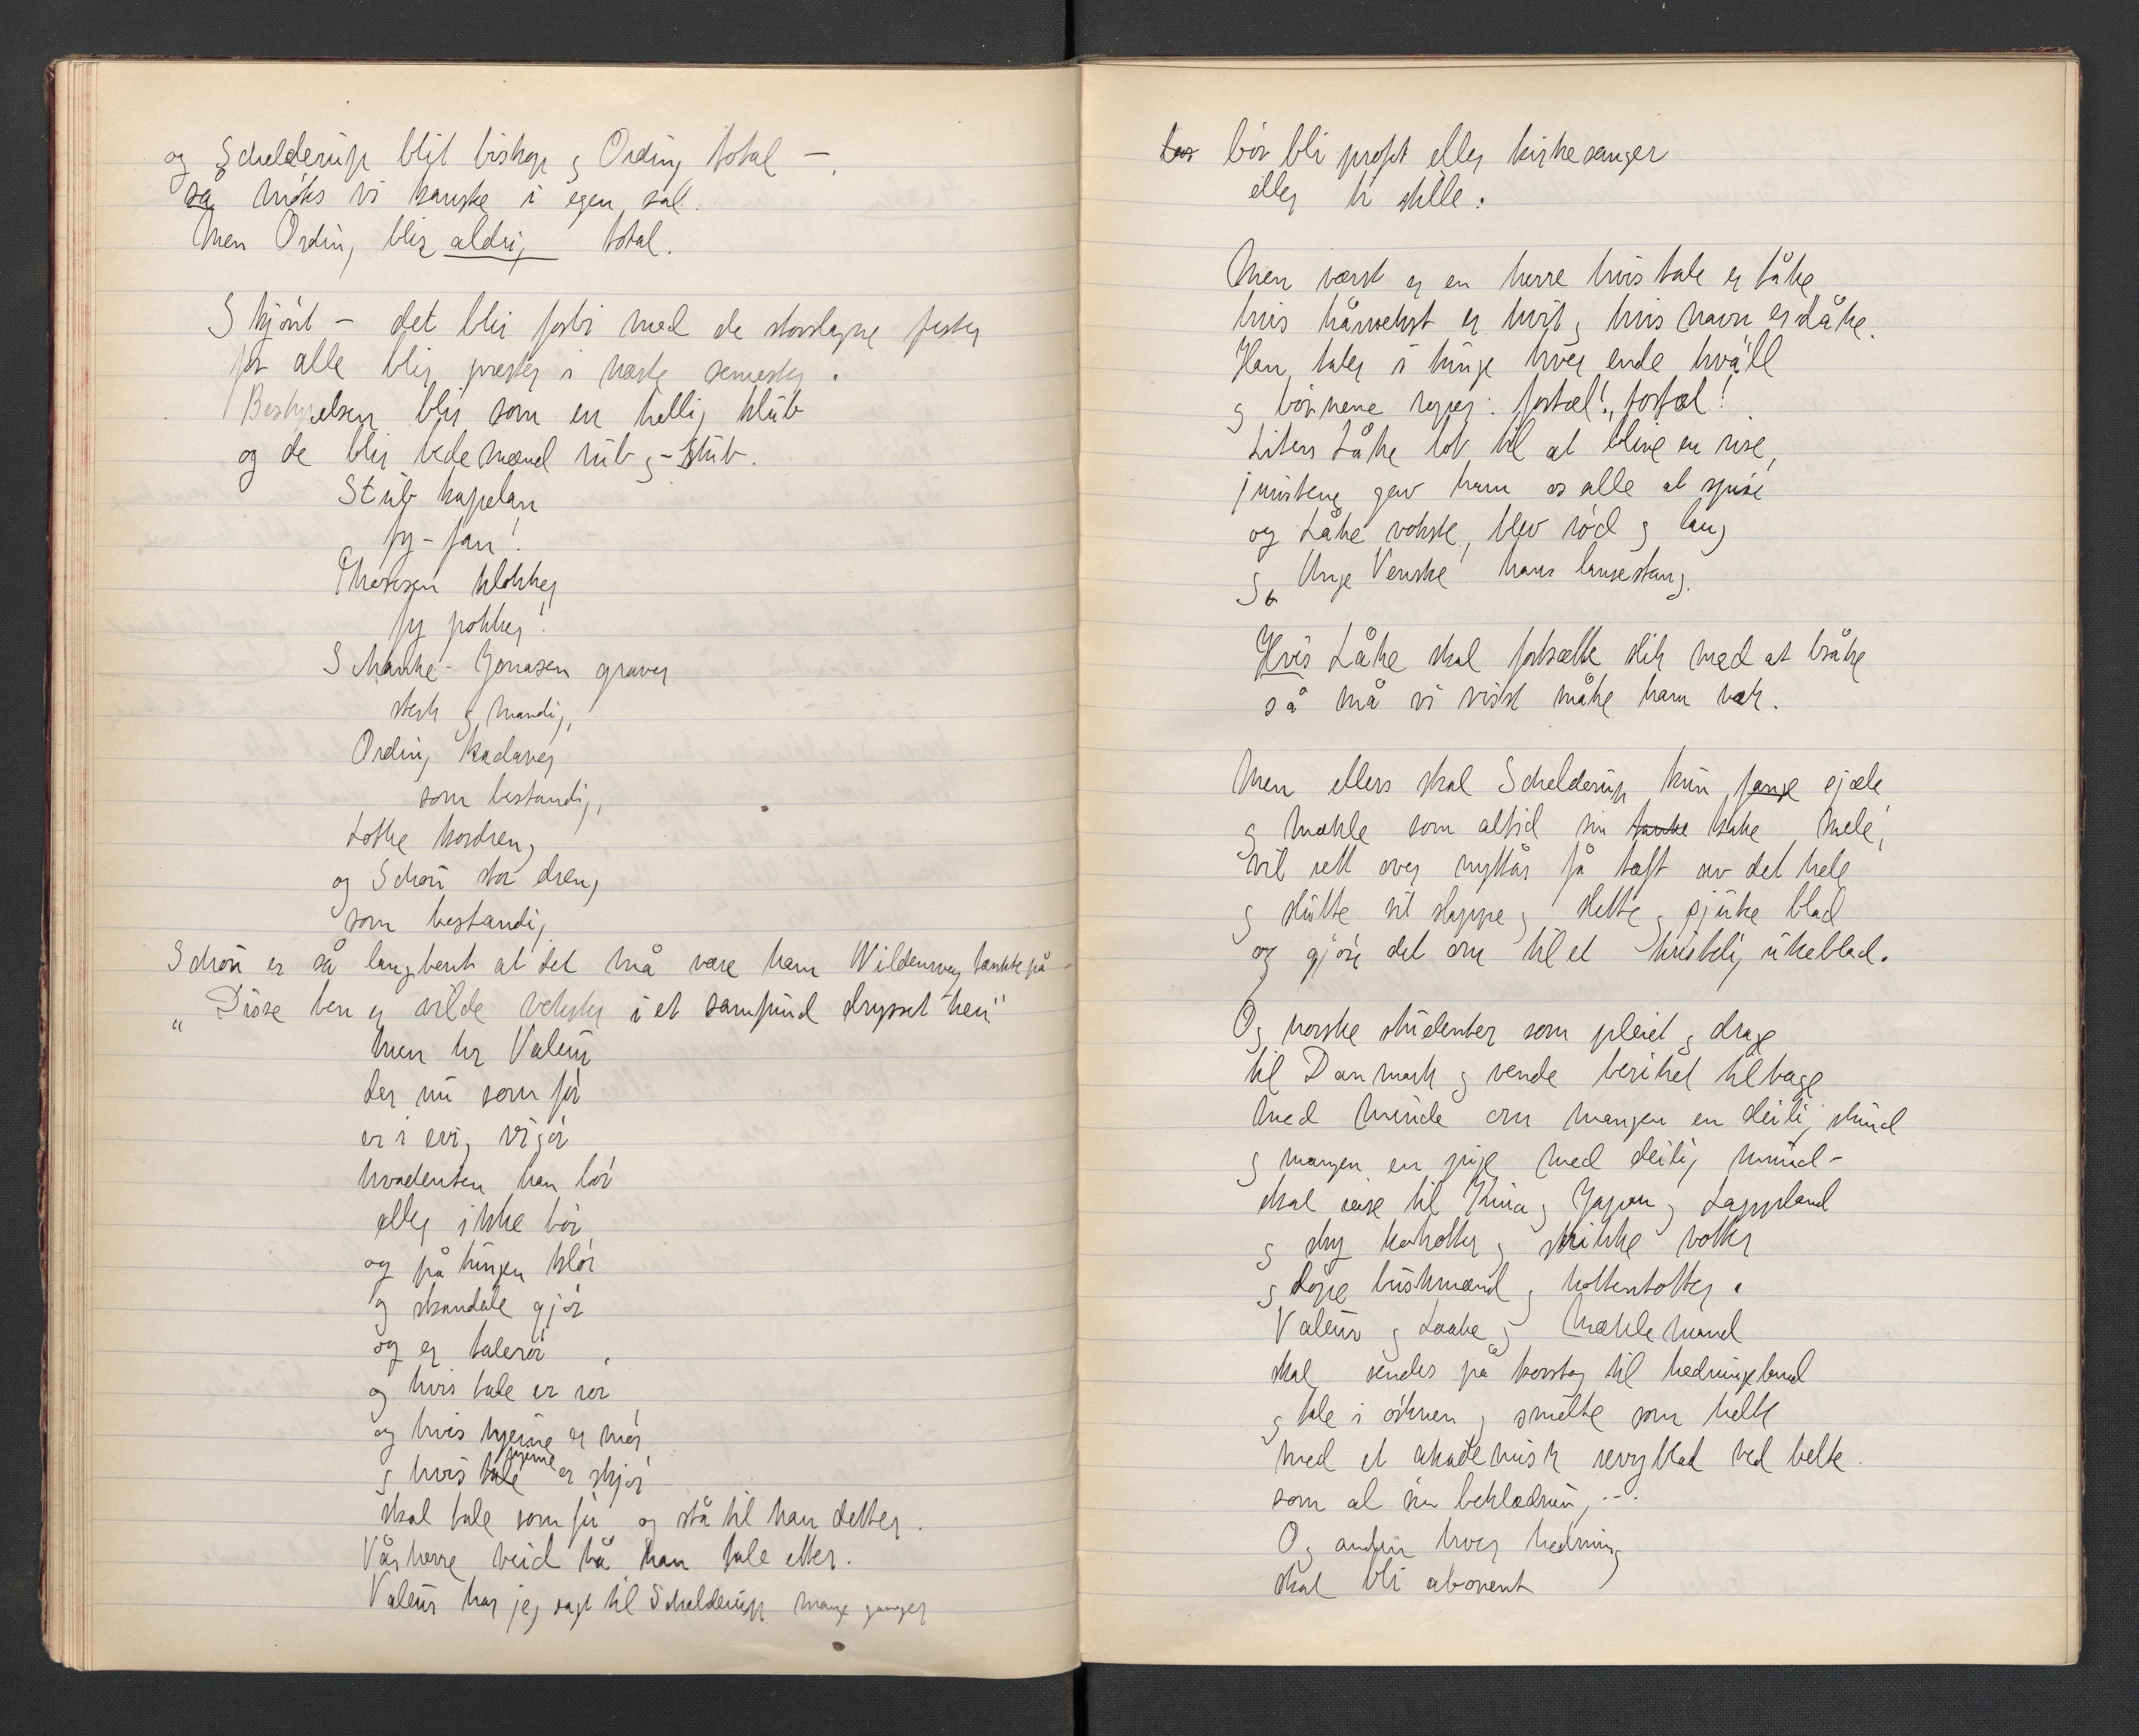 og Schelderup blit biskop og Ording total —
så møtes vi kanske i egen sal.
Men Ording blir aldrig total.
Skjönt — det blir forbi med de storslagne fester
for alle blir prester i næste semester.
Bestyrelsen blir som en hellig klub
og de blir bedemænd rub og stub.
Stub kapelan
fy-fan!
Thoresen klokker
fy pokker!
Schanke-Jonasen graver
sterk og mandig,
Ording kadaver
som bestandig,
Løkke kordreng
og Schøn stor dreng
som bestandig
Schøn er så langbent at det må være ham Wildenwey tænkte på
„Disse ben er vilde vekster i et samfund drysset hen"
Men hr Valeur
der nu som før
er i evig vigør
hvadenten han bør
eller ikke bør
og på tinger klør
og skandale gjør
og er talerør
og hvis tale er rør
og hvis hjerne er mør
og hvis tale hjerne er skjør
skal tale som før og stå til han detter.
Vår herre veid hå han tale etter.
Valeur har jeg sagt til Schelderup mange ganger
bør bli profet eller kirkesanger
eller ti stille.
Men værst er en herre hvis tale er tåke
hvis hårvekst er hvit og hvis navn er Låke.
Han taler i tinge hver ende kväll
og börnene roper: fortæl! fortæl!
Liten Låke lot til at blive en rise,
juristene gav ham os alle at spise
og Låke vokste, blev rød og lang
og Unge Venske hans lansestang.
Hvis Låke skal fortsætte slik med at bråke
så må vi visst måke ham væk.
Men ellers skal Schelderup kun fange sjæle
og Mæhle som altid sin kake mele,
vil rett over nyttår få tæft av det hele
og slutte sit slappe og slette og sjuke blad
og gjøre det om til et kristelig ukeblad.
Og norske studenter som pleiet og drage
til Danmark og vende beriket tilbage
med minde om mangen en deilig stund
og mangen en pige med deilig mund —
skal reise til Kina og Japan og Lappland
og sky kokotter og strikke votter
og døpe buskmænd og hottentotter.
Valeur og Laake og Mæhle mand
skal sendes på korstog til hedningeland
og tale i ørkner og smelte som helte
med et akademisk revyblad ved belte
som al sin beklædning,...
Og anden hver hedning
skal bli abonent